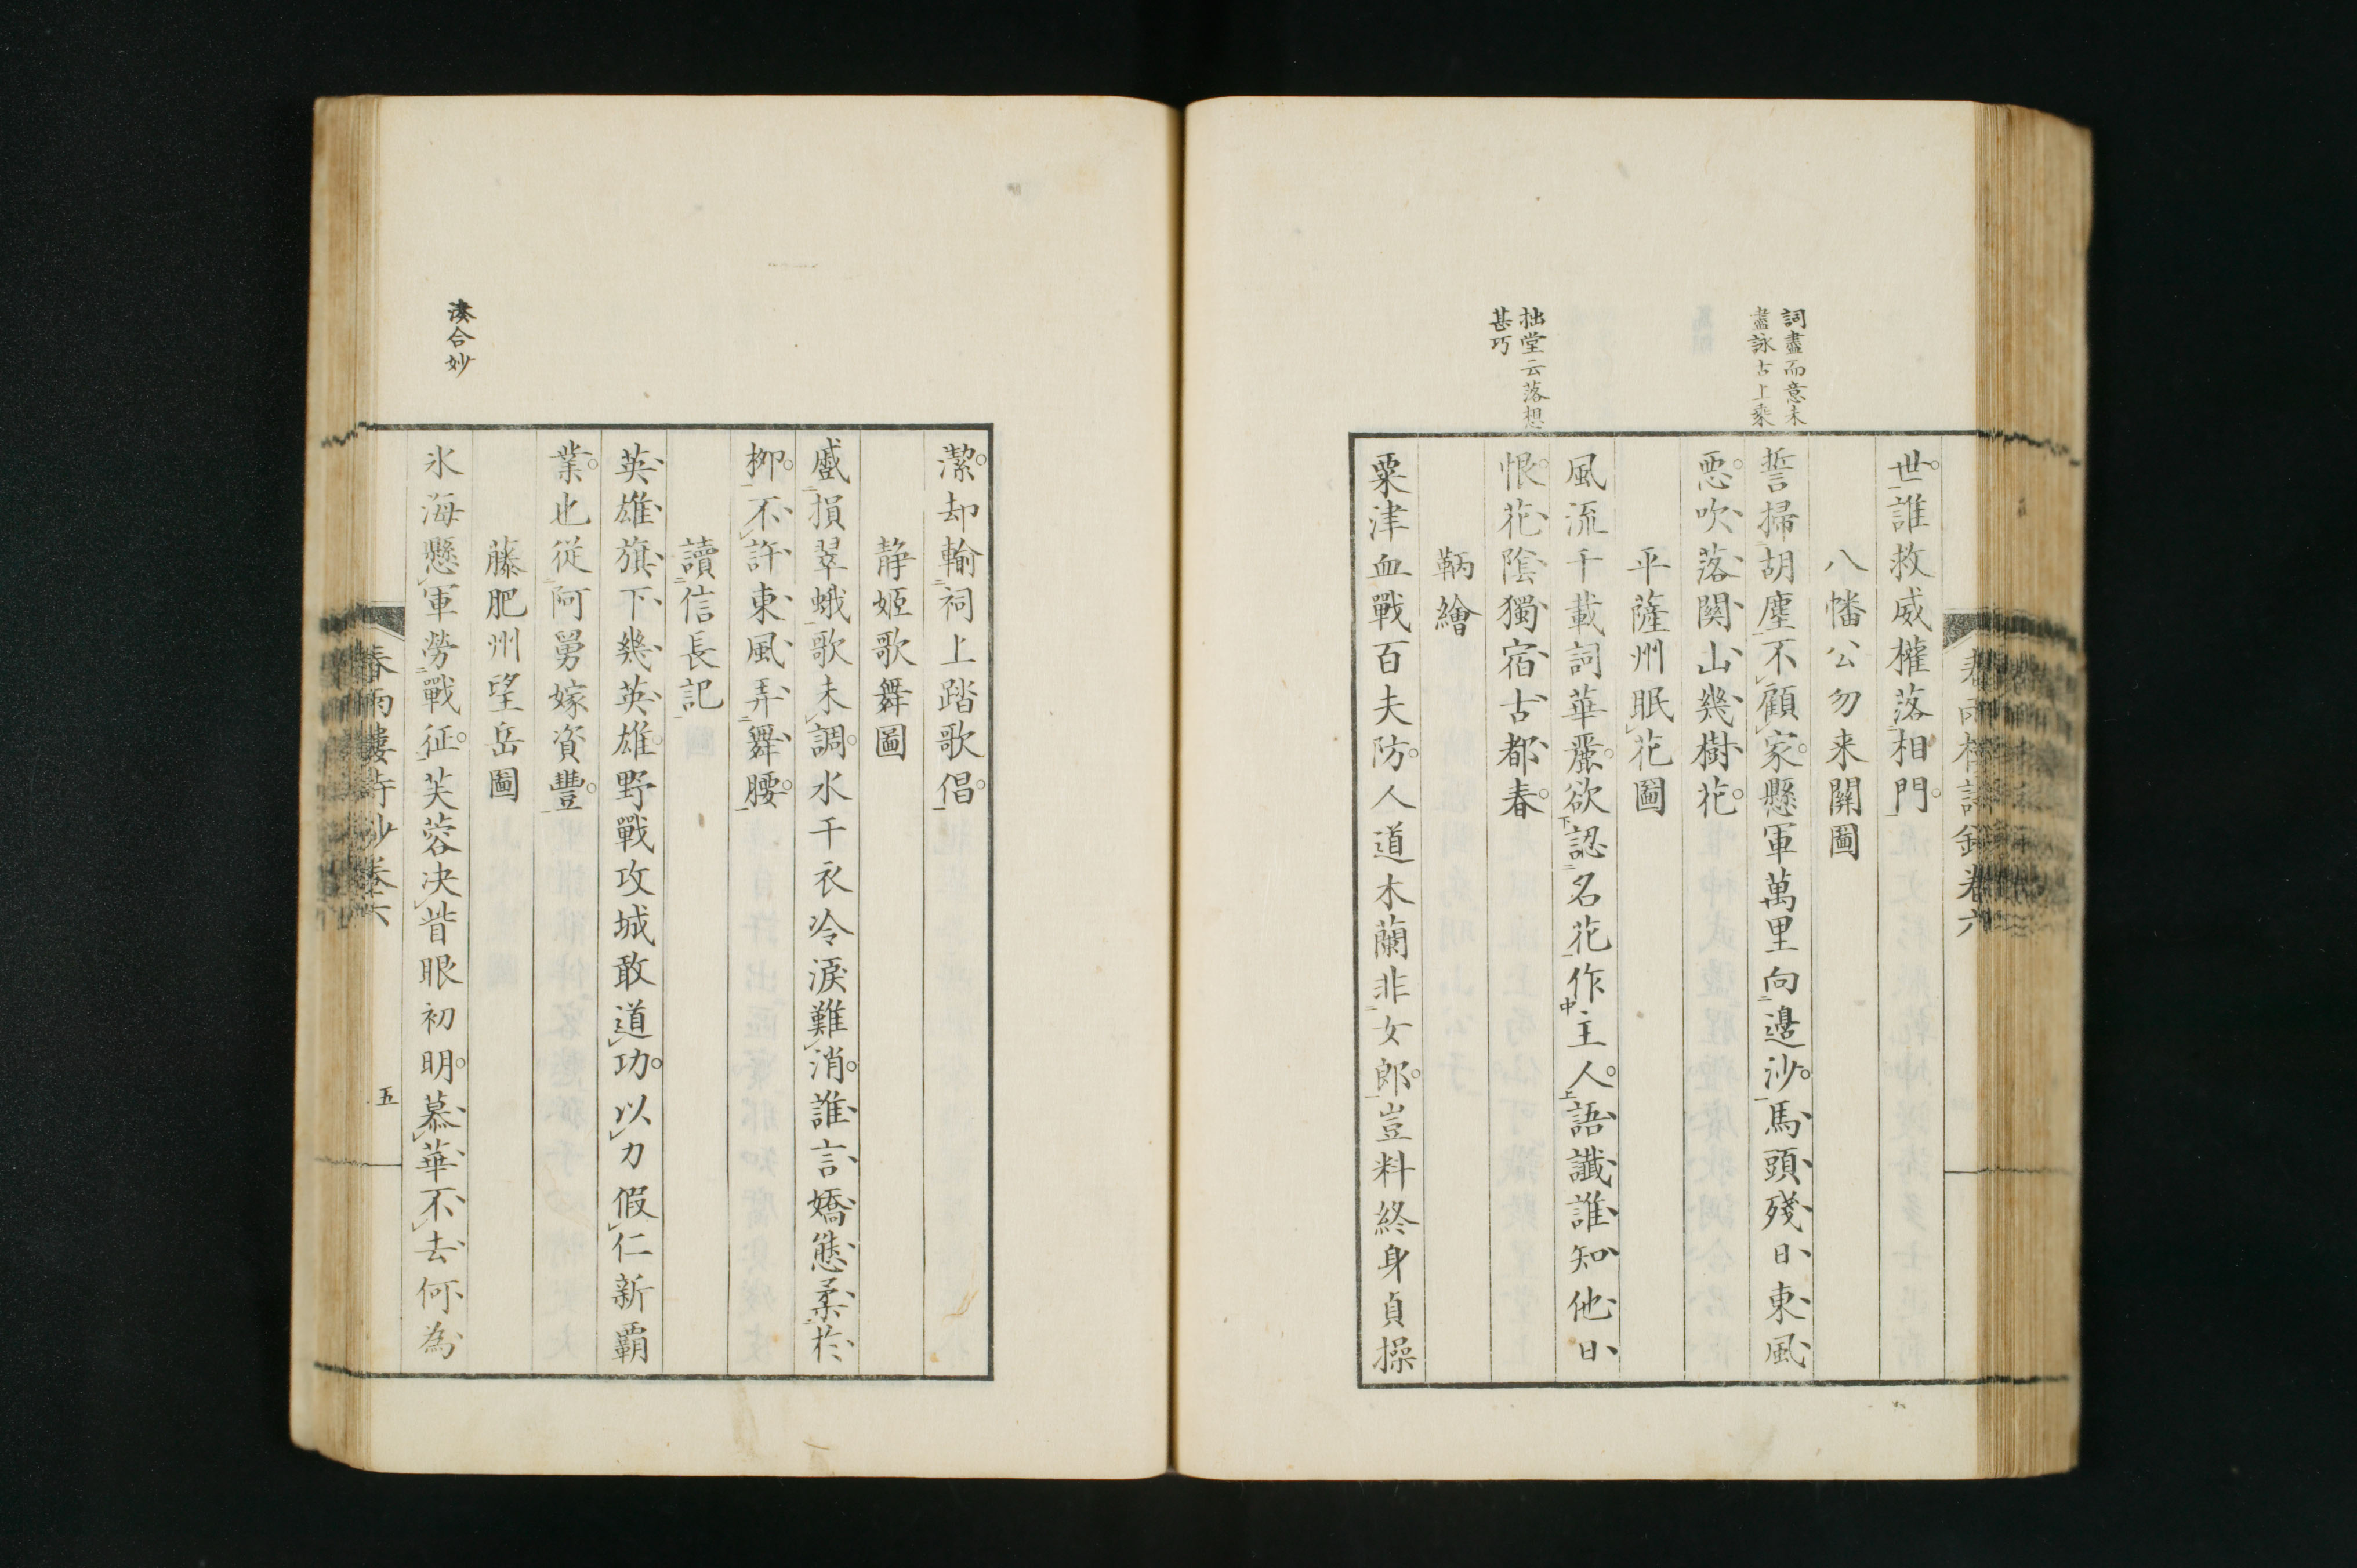 春雨樓詩鈔卷六
世誰救威權落相門
八幡公勿来關圖
詞盡而意未
盡詠古上乘
誓掃胡塵不顧家懸軍萬里向邊沙馬頭殘日東風
惡吹落關山幾樹花
平薩州眠花圖
風流千載詞華麗欲認名花作主人語讖誰知他日
拙堂云落想
甚巧
恨花陰獨宿古都春
鞆繪
粟津血戰百夫防人道木蘭非女郎豈料終身貞操
潔却輸祠上踏歌倡
静姬歌舞圖
蹙損翠蛾歌未調水干衣冷淚難消誰言嬌態柔於
柳不許東風弄舞腰
讀信長記
英雄旗下幾英雄野戰攻城敢道功以力假仁新覇
業也從阿舅嫁資豐
藤肥州望岳圖
湊合妙
氷海懸軍勞戰征芙蓉决眥眼初明慕華不去何為
春雨樓詩鈔卷六
五